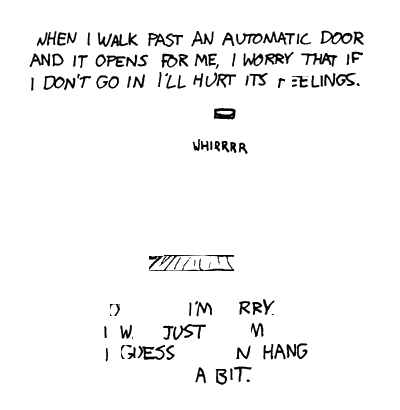 WHEN I WALK PAST AN AUTOMATIC DOOR
AND IT OPENS FOR ME, I WORRY THAT IF
I DON'T GO IN I'LL HURT ITS FEELINGS.
WHIRRRR
I'M
I JUST
I GUESS HANG
A BIT.